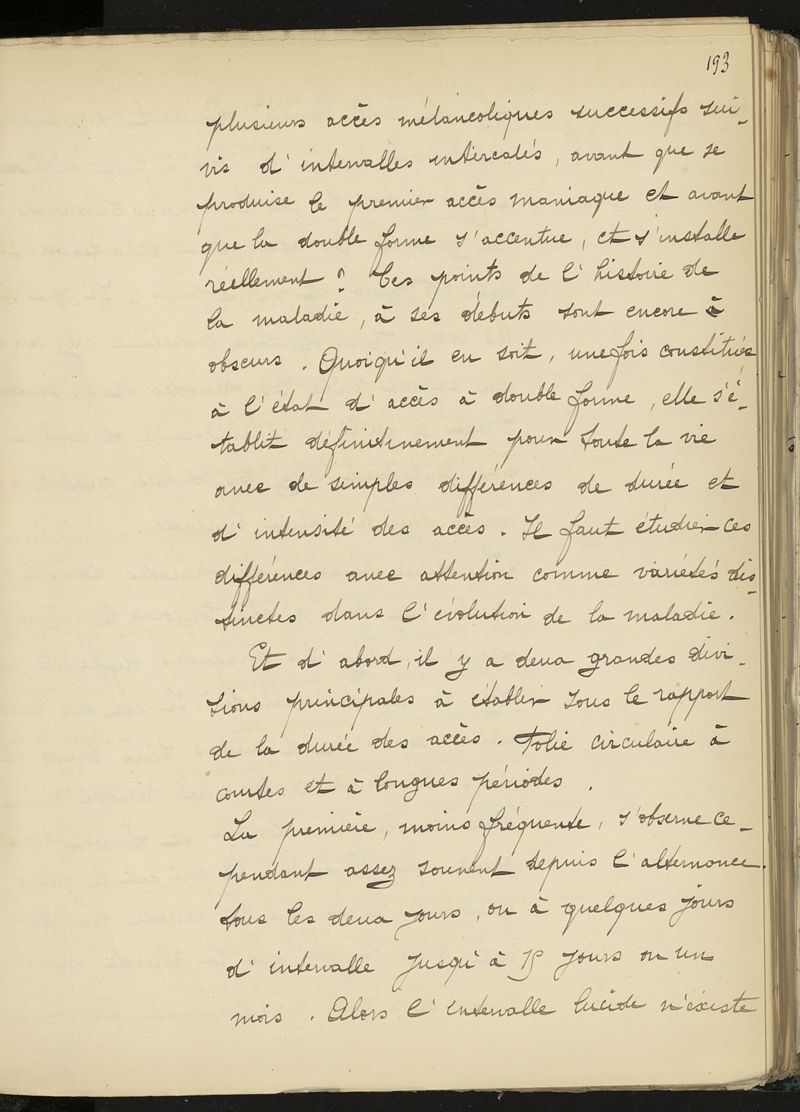 193
plusieurs accès mélancoliques successifs sui-
vis d'intervalles intercalés, avant que se
produise le premier accès maniaque et avant
que la double forme s'accentue, et s'installe
réellement ? Ces points de l'histoire de
la maladie, à ses débuts sont encore
obscurs. Quoiqu'il en soit, une fois constituée
à l'état d'accès à double forme, elle s'é-
tablit définitivement pour toute la vie
avec de simples différences de durée et
d'intensité des accès. Il faut étudier ces
différences avec attention comme variétés dis-
tinctes dans l'évolution de la maladie.
Et d'abord, il y a deux grandes divi-
sions principales à établir sous le rapport
de la durée des accès. Folie circulaire à
courtes et à longues périodes.
La première, moins fréquente, s'observe ce-
pendant assez souvent depuis l'alternance
tous les deux jours, ou à quelques jours
d'intervalle jusqu'à 15 jours ou un
mois. Alors l'intervalle lucide n'existe